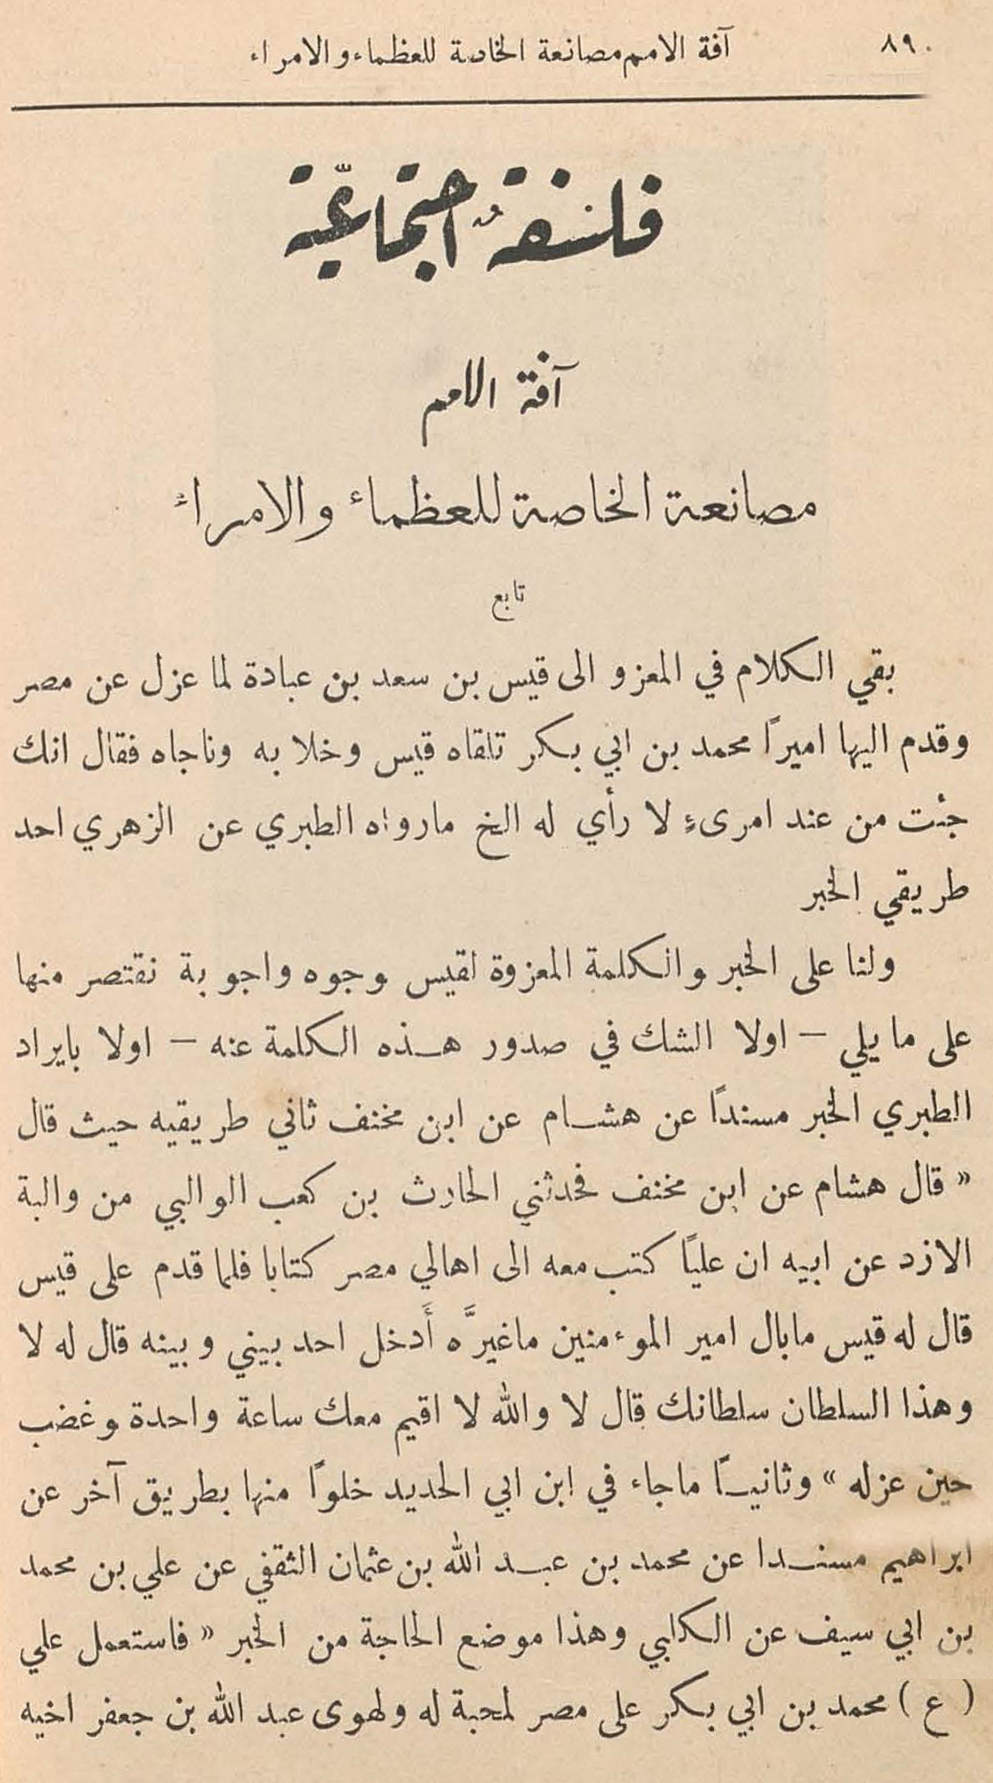 ٨٩٠ آفة الامم مصانعة الخاصة للعظماء والامراء
فلسفة اجتماعية
آفة الامم
مصانعة الخاصة للعظماء والامراء
تابع
بقي الكلام في المعزو الى قيس بن سعد بن عبادة لما عزل عن مصر
وقدم اليها اميرًا محمد بن ابي بكر تلقاه قيس وخلا به وناجاه فقال انك
جئت من عند امرىءٍ لا رأي له الخ مارواه الطبري عن الزهري احد
طريقي الخبر
ولنا على الخبر والكلمة المعزوة لقيس وجوه واجوبة نقتصر منها
على ما يلي – اولا الشك في صدور هذه الكلمة عنه – اولا بايراد
الطبري الخبر مسندًا عن هشام عن ابن مخنف ثاني طريقيه حيث قال
« قال هشام عن ابن مخنف فحدثني الحارث بن كعب الوالبي من والبة
الازد عن ابيه ان عليًا كتب معه الى اهالي مصر كتابا فلما قدم على قيس
قال له قيس مابال امير المؤمنين ماغيرَّه أَدخل احد بيني وبينه قال له لا
وهذا السلطان سلطانك قال لا والله لا اقيم معك ساعة واحدة وغضب
حين عزله » وثانيًا ماجاء في ابن ابي الحديد خلوًا منها بطريق آخر عن
ابراهيم مسندا عن محمد بن عبد الله بن عثمان الثقفي عن علي بن محمد
بن ابي سيف عن الكلبي وهذا موضع الحاجة من الخبر « فاستعمل علي
( ع ) محمد بن ابي بكر على مصر لمحبة له ولهوى عبد الله بن جعفر اخيه